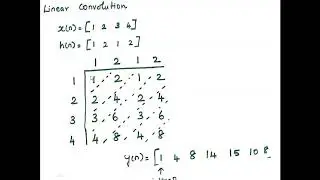 Linear Convolution
x(n) = [1 2 3 4]
h(n) = [1 2 1 2]
1 2 1 2
1 1 2 1 2
2 2 4 2 4
3 3 6 3 6
4 4 8 4 8
y(n) = [1 4 8 14 15 10 8
↑